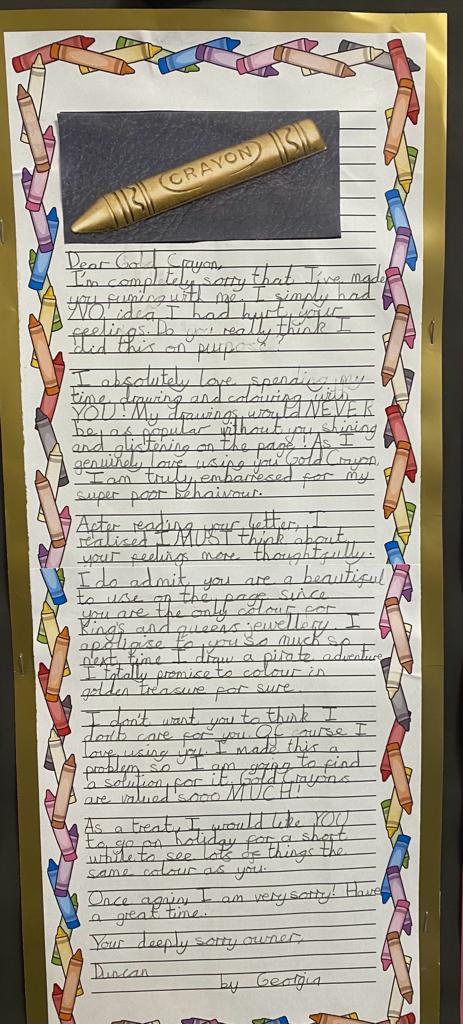 CRAYON
Dear Gold Crayon,
I'm completely sorry that I've made
you fuming with me. I simply had
NO idea I had hurt your
feelings. Do you really think I
did this on purpose?
I absolutely love spending my
time drawing and colouring with
YOU! My drawings would NEVER
be as popular without you shining
and glistening on the page! As I
genuinely love using you Gold Crayon,
I am truly embarresed for my
super poor behaivour.
After reading your letter, I
realised I MUST think about
your feelings more thoughtfully.
I do admit, you are a beautiful
to use on the page since
you are the only colour for
King's and queens jewellery. I
apoligise to you so much so
next time I draw a pirate adventure
I totally promise to colour in
golden treasure for sure.
I don't want you to think I
don't care for you. Of course I
love using you. I made this a
problem so I am going to find
a solution for it. Gold Crayons
are valued sooo MUCH!
As a treat, I would like YOU
to go on holiday for a short
while to see lots of things the
same colour as you.
Once again, I am very sorry! Have
a great time.
Your deeply sorry owner,
Duncan
by Georgia